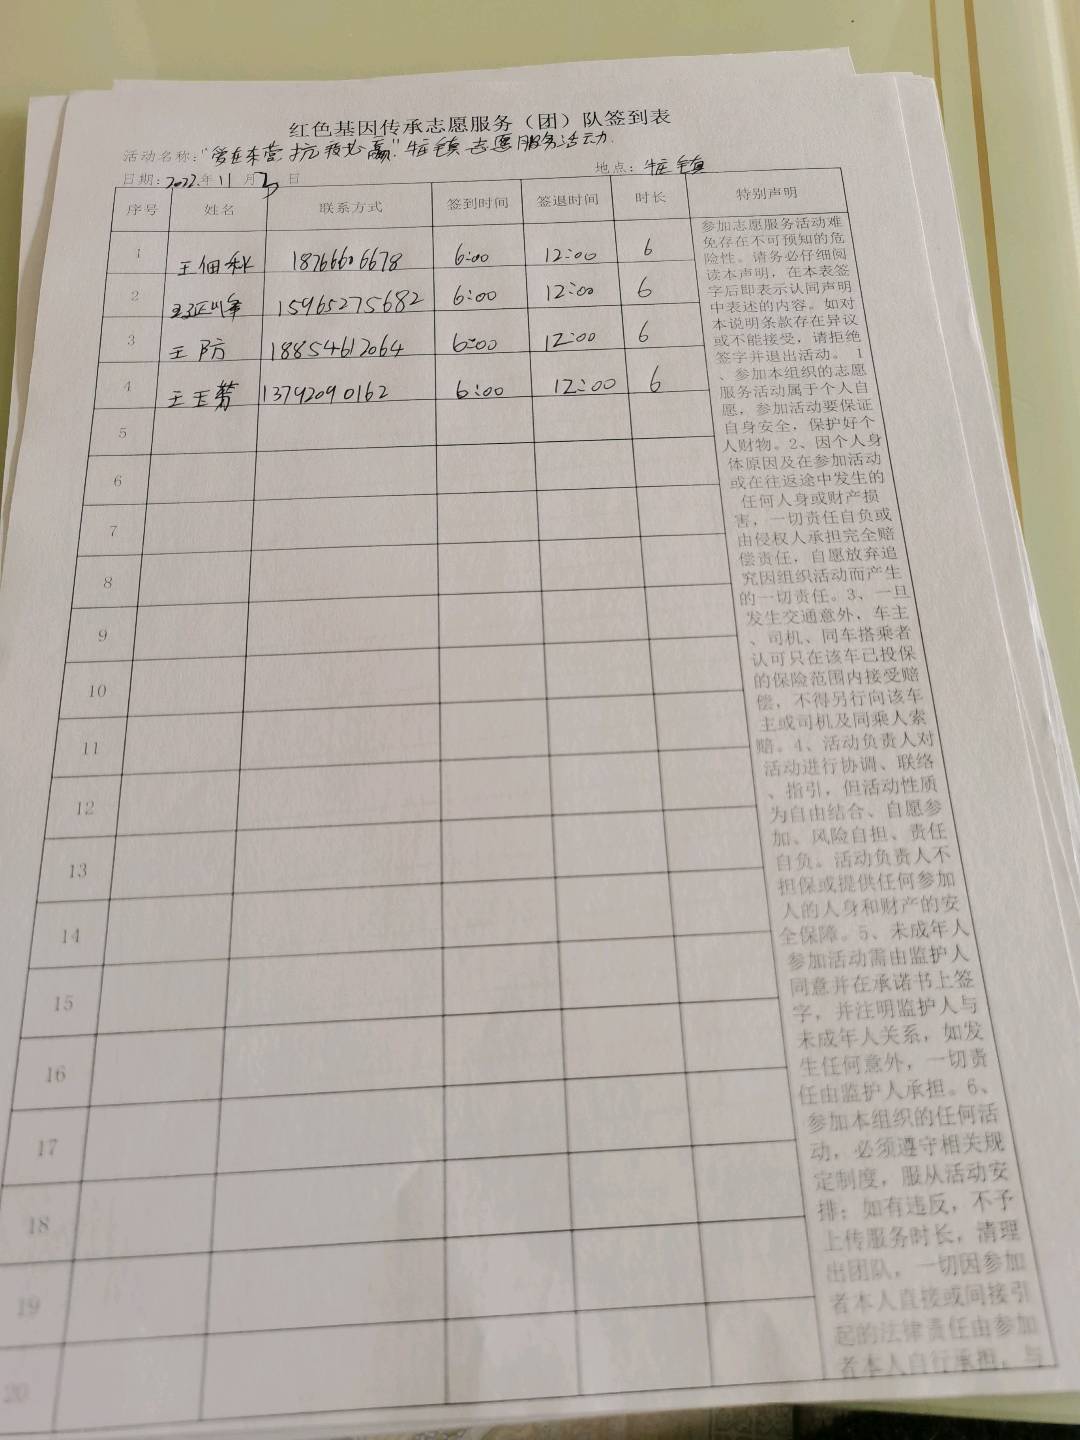 红色基因传承志愿服务（团）队签到表
活动名称："爱在东营 抗疫必赢"牛庄镇志愿服务活动
日期：2022年11月 日 地点：牛庄镇
序号 姓名 联系方式 签到时间 签退时间 时长 特别声明
1 王佃秋 18766606678 6:00 12:00 6
2 15965275682 6:00 12:00 6
3 王防 18854612064 6:00 12:00 6
4 王玉芳 13792090162 6:00 12:00 6
5
6
7
8
9
10
11
12
13
14
15
16
17
18
19
20
参加志愿服务活动难
免存在不可预知的危
险性。请务必仔细阅
读本声明，在本表签
字后即表示认同声明
中表述的内容。如对
本说明条款存在异议
或不能接受，请拒绝
签字并退出活动。 1
、参加本组织的志愿
服务活动属于个人自
愿，参加活动要保证
自身安全，保护好个
人财物。2、因个人身
体原因及在参加活动
或在往返途中发生的
任何人身或财产损
害，一切责任自负或
由侵权人承担完全赔
偿责任，自愿放弃追
究因组织活动而产生
的一切责任。3、一旦
发生交通意外，车主
、司机、同车搭乘者
认可只在该车已投保
的保险范围内接受赔
偿，不得另行向该车
主或司机及同乘人索
赔。4、活动负责人对
活动进行协调、联络
、指引，但活动性质
为自由结合、自愿参
加、风险自担、责任
自负。活动负责人不
担保或提供任何参加
人的人身和财产的安
全保障。5、未成年人
参加活动需由监护人
同意并在承诺书上签
字，并注明监护人与
未成年人关系，如发
生任何意外，一切责
任由监护人承担。6、
参加本组织的任何活
动，必须遵守相关规
定制度，服从活动安
排；如有违反，不予
上传服务时长，清理
出团队，一切因参加
者本人直接或间接引
起的法律责任由参加
者本人自行承担，与